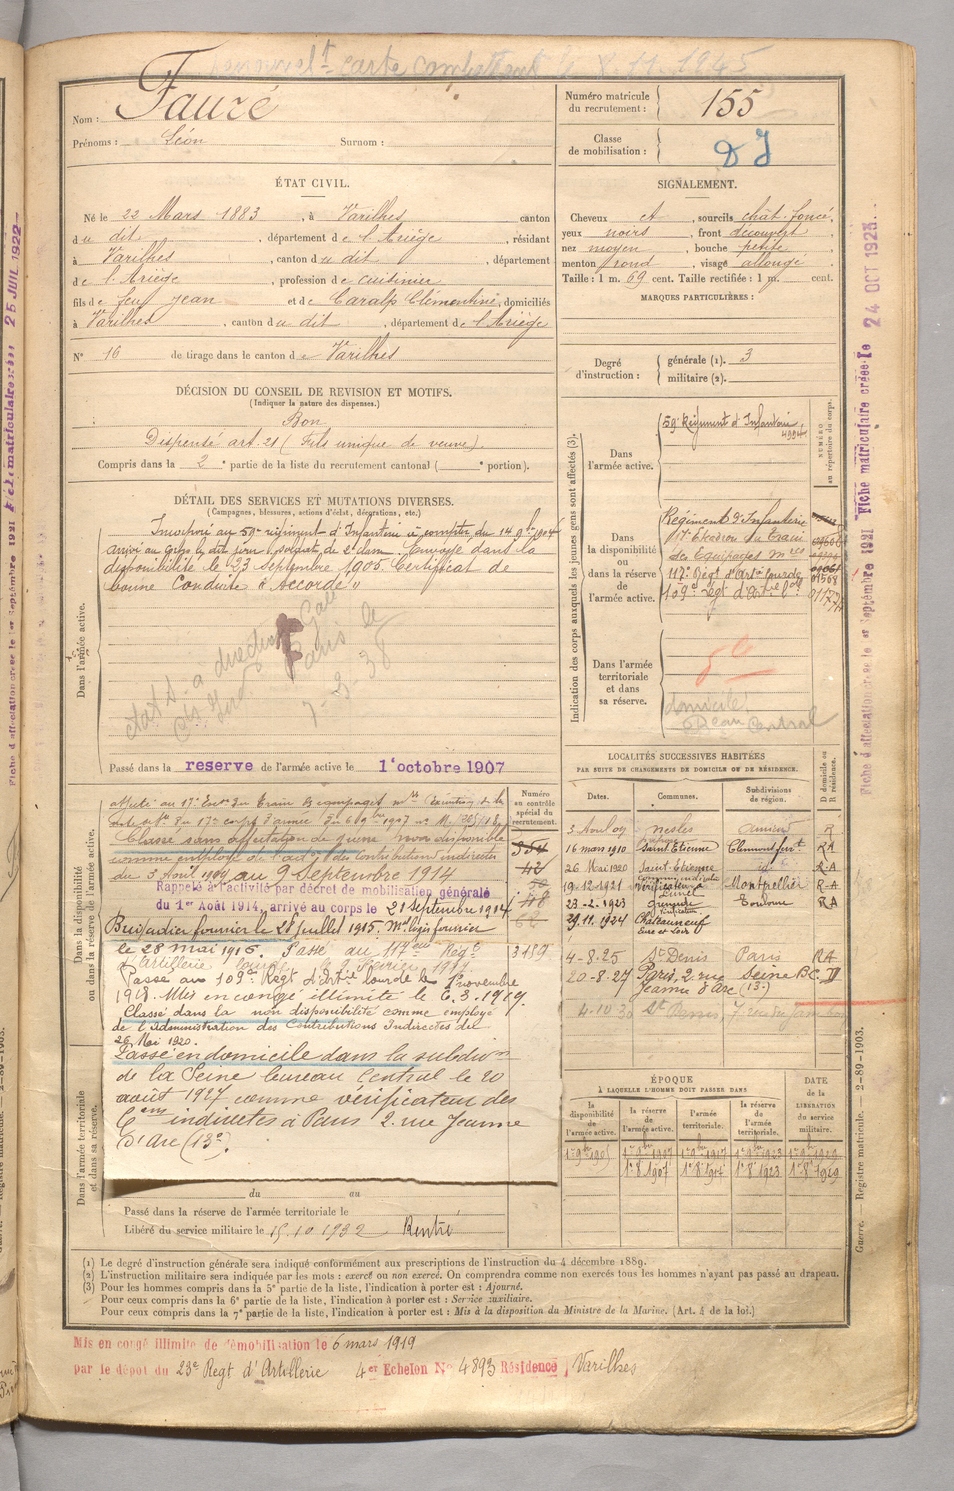 carte combattant le 8.11.1945
Nom : Fauré
Prénoms : Léon Surnom :
Numéro matricule du recrutement : 155
Classe de mobilisation : DJ
ÉTAT CIVIL.
Né le 22 Mars 1883, à Varilhes canton
du dit, département de l'Ariège, résidant
à Varilhes, canton du dit, département
de l'Ariège, profession de cuisinier
fils de feu Jean et de Caralp Clémentine, domiciliés
à Varilhes, canton du dit, département de l'Ariège
N° 16 de tirage dans le canton de Varilhes
SIGNALEMENT.
Cheveux ct, sourcils chât. foncé,
yeux noirs, front découvert,
nez moyen, bouche petite,
menton rond, visage allongé
Taille : 1 m. 69 cent. Taille rectifiée : 1 m. cent.
MARQUES PARTICULIÈRES :
Degré d'instruction : générale (1). 3
militaire (2).
DÉCISION DU CONSEIL DE REVISION ET MOTIFS.
(Indiquer la nature des dispenses.)
Bon
Dispensé art. 21 (Fils unique de veuve)
Compris dans la 2e partie de la liste du recrutement cantonal ( e portion).
DÉTAIL DES SERVICES ET MUTATIONS DIVERSES.
(Campagnes, blessures, actions d'éclat, décorations, etc.)
Dans l'armée active.
Incorporé au 59e régiment d'Infanterie à compter du 14 9bre 1904
arrivé au corps le dit jour, soldat de 2e classe. Envoyé dans la
disponibilité le 23 Septembre 1905. Certificat de
bonne Conduite "Accordé"
Paris le
7-3-38
Passé dans la reserve de l'armée active le 1er octobre 1907
Indication des corps auxquels les jeunes gens sont affectés (3).
NUMÉRO au répertoire du corps.
Dans l'armée active.
59e Régiment d'Infanterie
Dans la disponibilité ou dans la réserve de l'armée active.
Régiment d'Infanterie
17e Escadron du Train
des Equipages Mres
117e Régt d'Artie lourde
109e Régt d'Artie lde
Dans l'armée territoriale et dans sa réserve.
domicile
Bureau Central
Dans la disponibilité ou dans la réserve de l'armée active.
Numéro au contrôle spécial du recrutement.
Classé sans affectation de guerre non disponible
comme employé de l'adton des Contributions indirectes
du 3 Août 1909 au 9 Septembre 1914
Rappelé à l'activité par décret de mobilisation générale
du 1er Août 1914, arrivé au corps le 21 septembre 1914
Brigadier fourrier le 28 juillet 1915. Mal logis fourrier
le 28 mai 1916. Passé au 117eme Régt
Passé au 109e Régt d'Artie lourde le 1er novembre
1918. Mis en congé illimité le 6.3.1919.
Classé dans la non disponibilité comme employé
de l'Administration des Contributions Indirectes du
26 Mai 1920.
Passé en domicile dans la subdivon
de la Seine bureau Central le 20
août 1927 comme vérificateur des
Cons indirectes à Paris 2 rue Jeanne
D'Arc (13e).
3189
LOCALITÉS SUCCESSIVES HABITÉES
PAR SUITE DE CHANGEMENTS DE DOMICILE OU DE RÉSIDENCE.
Dates. Communes. Subdivisions de région. D domicile ou R résidence.
3 Août 09 Nesles Amiens R
16 mars 1910 Saint Etienne Clermont Ferrt. RA
26 Mai 1920 Saint-Etienne id RA
19-12-1921 Vérificateur à Lunel Montpellier R-A
23-2-1923 Grenade Toulouse R-A
29.11.1924 Châteauneuf Eure et Loir
4-8-25 St Denis Paris RA
20-8-27 Paris, 2 rue Jeanne d'Arc (13e) Seine BC D
4-10-30 St Denis, 7
ÉPOQUE
À LAQUELLE L'HOMME DOIT PASSER DANS
la disponibilité de l'armée active. la réserve de l'armée active. l'armée territoriale. la réserve de l'armée territoriale. DATE de la LIBÉRATION du service militaire.
1er 8bre 1907 1er 8bre 1923 1er 8bre 1929
Dans l'armée territoriale et dans sa réserve.
du au
Passé dans la réserve de l'armée territoriale le
Libéré du service militaire le 15.10.1932 Rentré
(1) Le degré d'instruction générale sera indiqué conformément aux prescriptions de l'instruction du 4 décembre 1889.
(2) L'instruction militaire sera indiquée par les mots : exercé ou non exercé. On comprendra comme non exercés tous les hommes n'ayant pas passé au drapeau.
(3) Pour les hommes compris dans la 5e partie de la liste, l'indication à porter est : Ajourné.
Pour ceux compris dans la 6e partie de la liste, l'indication à porter est : Service auxiliaire.
Pour ceux compris dans la 7e partie de la liste, l'indication à porter est : Mis à la disposition du Ministre de la Marine. (Art. 4 de la loi.)
Mis en congé illimité de démobilisation le 6 mars 1919
par le dépôt du 23e Regt d'Artillerie 4er Echelon N° 4893 Résidence, Varilhes
Fiche matriculaire créée le 25 JUIL 1922
Fiche d'affectation créée le 1er Septembre 1921
Fiche matriculaire créée le 24 OCT 1923
Fiche d'affectation créée le 1er Septembre 1921
Guerre. — Registre matricule. — 2-89-1903.